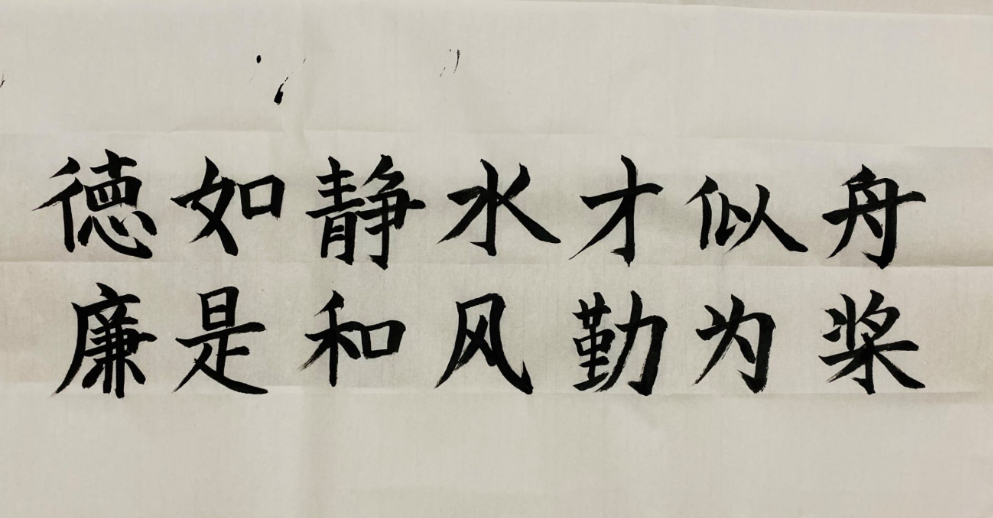 德如静水才似舟
廉是和风勤为桨